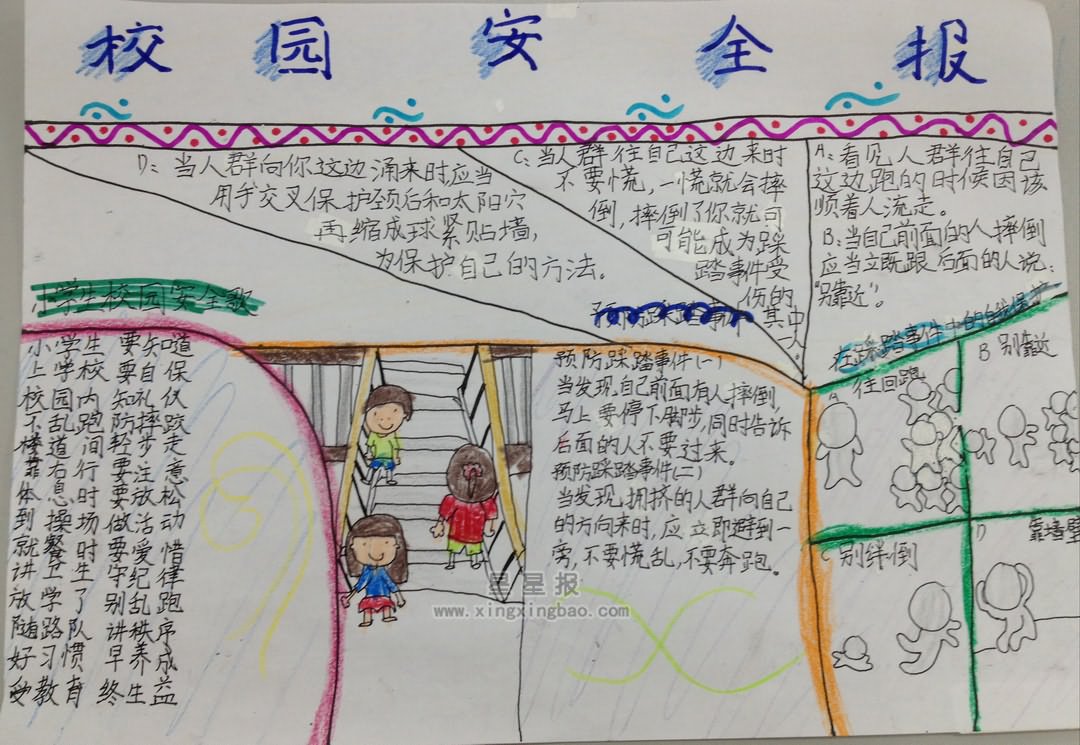 校园安全报
D：当人群向你这边涌来时，应当
用手交叉保护颈后和太阳穴
再缩成球紧贴墙，
为保护自己的方法。
C：当人群往自己这边来时
不要慌，一慌就会摔
倒，摔倒了你就可
可能成为踩
踏事件受
伤的
其中
一人。
A：看见人群往自己
这边跑的时候因该
顺着人流走。
B：当自己前面的人摔倒
应当立既跟后面的人说：
“别靠近”。
小学生校园安全歌
小学生 要知道
上学校 要自保
校园内 知礼仪
不乱跑 防摔跤
楼道间 轻步走
靠右行 要注意
体息时 要放松
到操场 做活动
就餐时 要爱惜
讲卫生 守纪律
放学了 别乱跑
随路队 讲秩序
好习惯 早养成
受教育 终生益
预防踩踏事件
预防踩踏事件（一）
当发现自己前面有人摔倒，
马上要停下脚步，同时告诉
后面的人不要过来。
预防踩踏事件（二）
当发现拥挤的人群向自己
的方向来时，应立即避到一
旁，不要慌乱，不要奔跑。
在踩踏事件中的自我保护
A 往回跑
B 别靠近
C 别绊倒
D 靠墙壁
星星报
www.xingxingbao.com